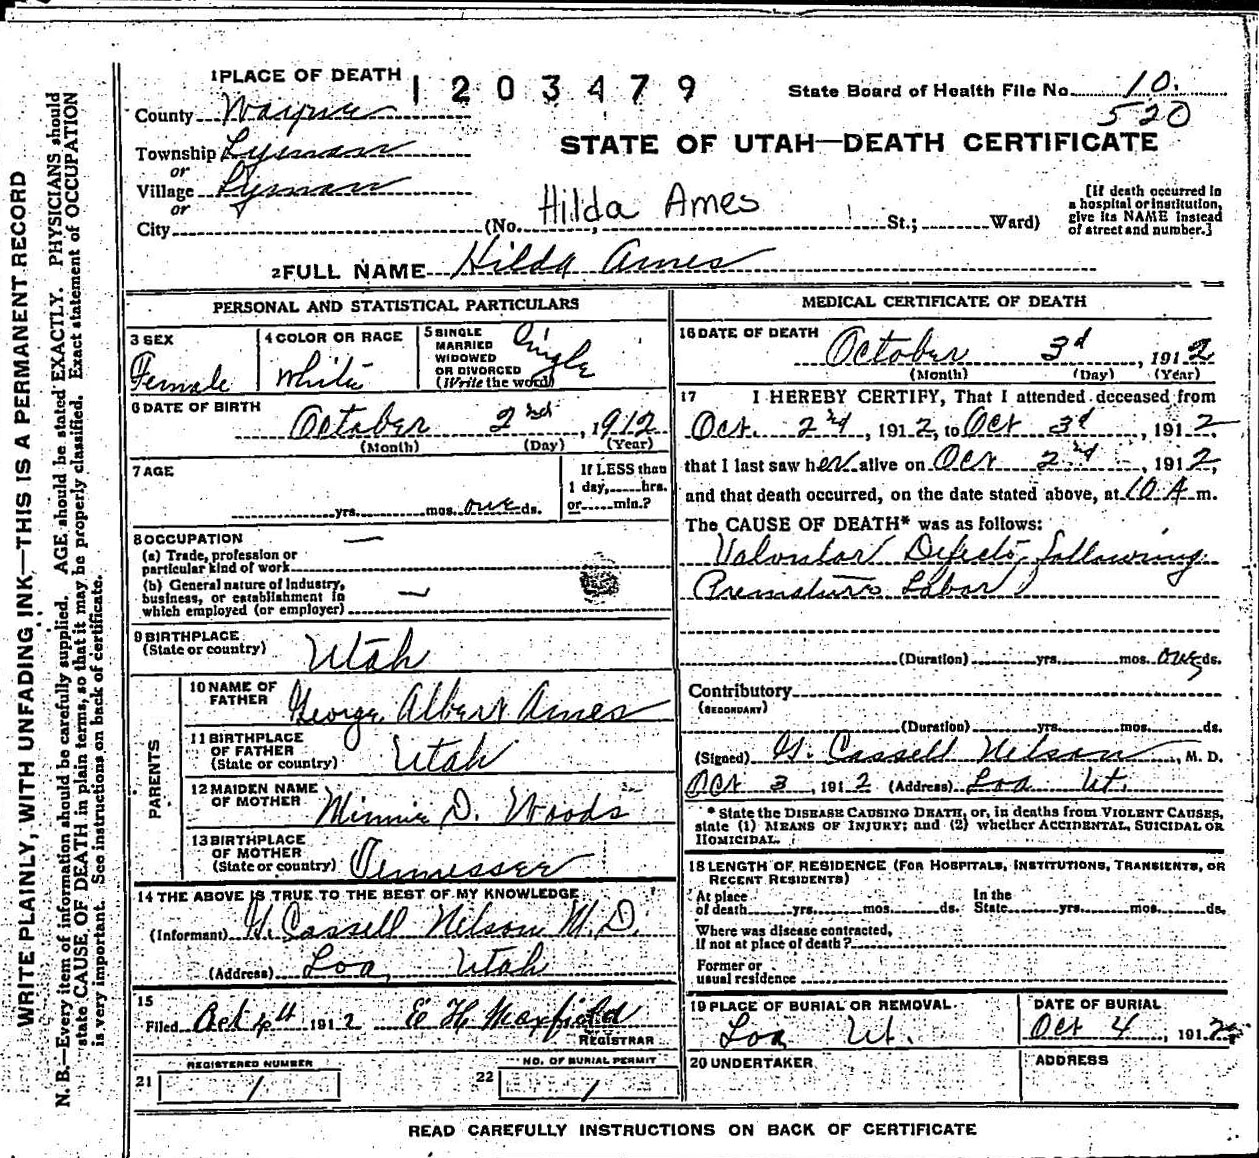 1 PLACE OF DEATH
1203479
State Board of Health File No. 10.
520
County Wayne
Township Lyman
or
Village Lyman
or
City
STATE OF UTAH—DEATH CERTIFICATE
Hilda Ames
(No. St.; Ward)
[If death occurred in
a hospital or institution,
give its NAME instead
of street and number.]
2 FULL NAME Hilda Ames
PERSONAL AND STATISTICAL PARTICULARS
3 SEX
Female
4 COLOR OR RACE
White
5 SINGLE
MARRIED
WIDOWED
OR DIVORCED
(Write the word)
Single
6 DATE OF BIRTH
October 2nd, 1912
(Month) (Day) (Year)
7 AGE
yrs. mos. one ds.
If LESS than
1 day, hrs.
or min.?
8 OCCUPATION —
(a) Trade, profession or
particular kind of work
(b) General nature of Industry,
business, or establishment in
which employed (or employer) —
9 BIRTHPLACE
(State or country) Utah
PARENTS
10 NAME OF
FATHER George Albert Ames
11 BIRTHPLACE
OF FATHER
(State or country) Utah
12 MAIDEN NAME
OF MOTHER Minnie D. Woods
13 BIRTHPLACE
OF MOTHER
(State or country) Tennessee
14 THE ABOVE IS TRUE TO THE BEST OF MY KNOWLEDGE
(Informant) G. Cassell Nelson M.D.
(Address) Loa, Utah
15
Filed Oct 4th 1912 E H Maxfield
REGISTRAR
REGISTERED NUMBER
21 1
NO. OF BURIAL PERMIT
22 1
MEDICAL CERTIFICATE OF DEATH
16 DATE OF DEATH
October 3d, 1912
(Month) (Day) (Year)
17 I HEREBY CERTIFY, That I attended deceased from
Oct. 2nd, 1912, to Oct 3d, 1912,
that I last saw her alive on Oct 2nd, 1912,
and that death occurred, on the date stated above, at 10 A m.
The CAUSE OF DEATH* was as follows:
Valvular Defects, following
Premature Labor
(Duration) yrs. mos. one ds.
Contributory
(SECONDARY)
(Duration) yrs. mos. ds.
(Signed) G. Cassell Nelson, M. D.
Oct 3, 1912 (Address) Loa Ut.
* State the DISEASE CAUSING DEATH, or, in deaths from VIOLENT CAUSES,
state (1) MEANS OF INJURY; and (2) whether ACCIDENTAL, SUICIDAL OR
HOMICIDAL.
18 LENGTH OF RESIDENCE (FOR HOSPITALS, INSTITUTIONS, TRANSIENTS, OR
RECENT RESIDENTS)
At place
of death yrs. mos. ds.
In the
State yrs. mos. ds.
Where was disease contracted,
if not at place of death?
Former or
usual residence
19 PLACE OF BURIAL OR REMOVAL
Loa Ut.
DATE OF BURIAL
Oct 4, 1912
20 UNDERTAKER
ADDRESS
READ CAREFULLY INSTRUCTIONS ON BACK OF CERTIFICATE
WRITE PLAINLY, WITH UNFADING INK—THIS IS A PERMANENT RECORD
N. B.—Every item of information should be carefully supplied. AGE should be stated EXACTLY. PHYSICIANS should
state CAUSE OF DEATH in plain terms, so that it may be properly classified. Exact statement of OCCUPATION
is very important. See instructions on back of certificate.